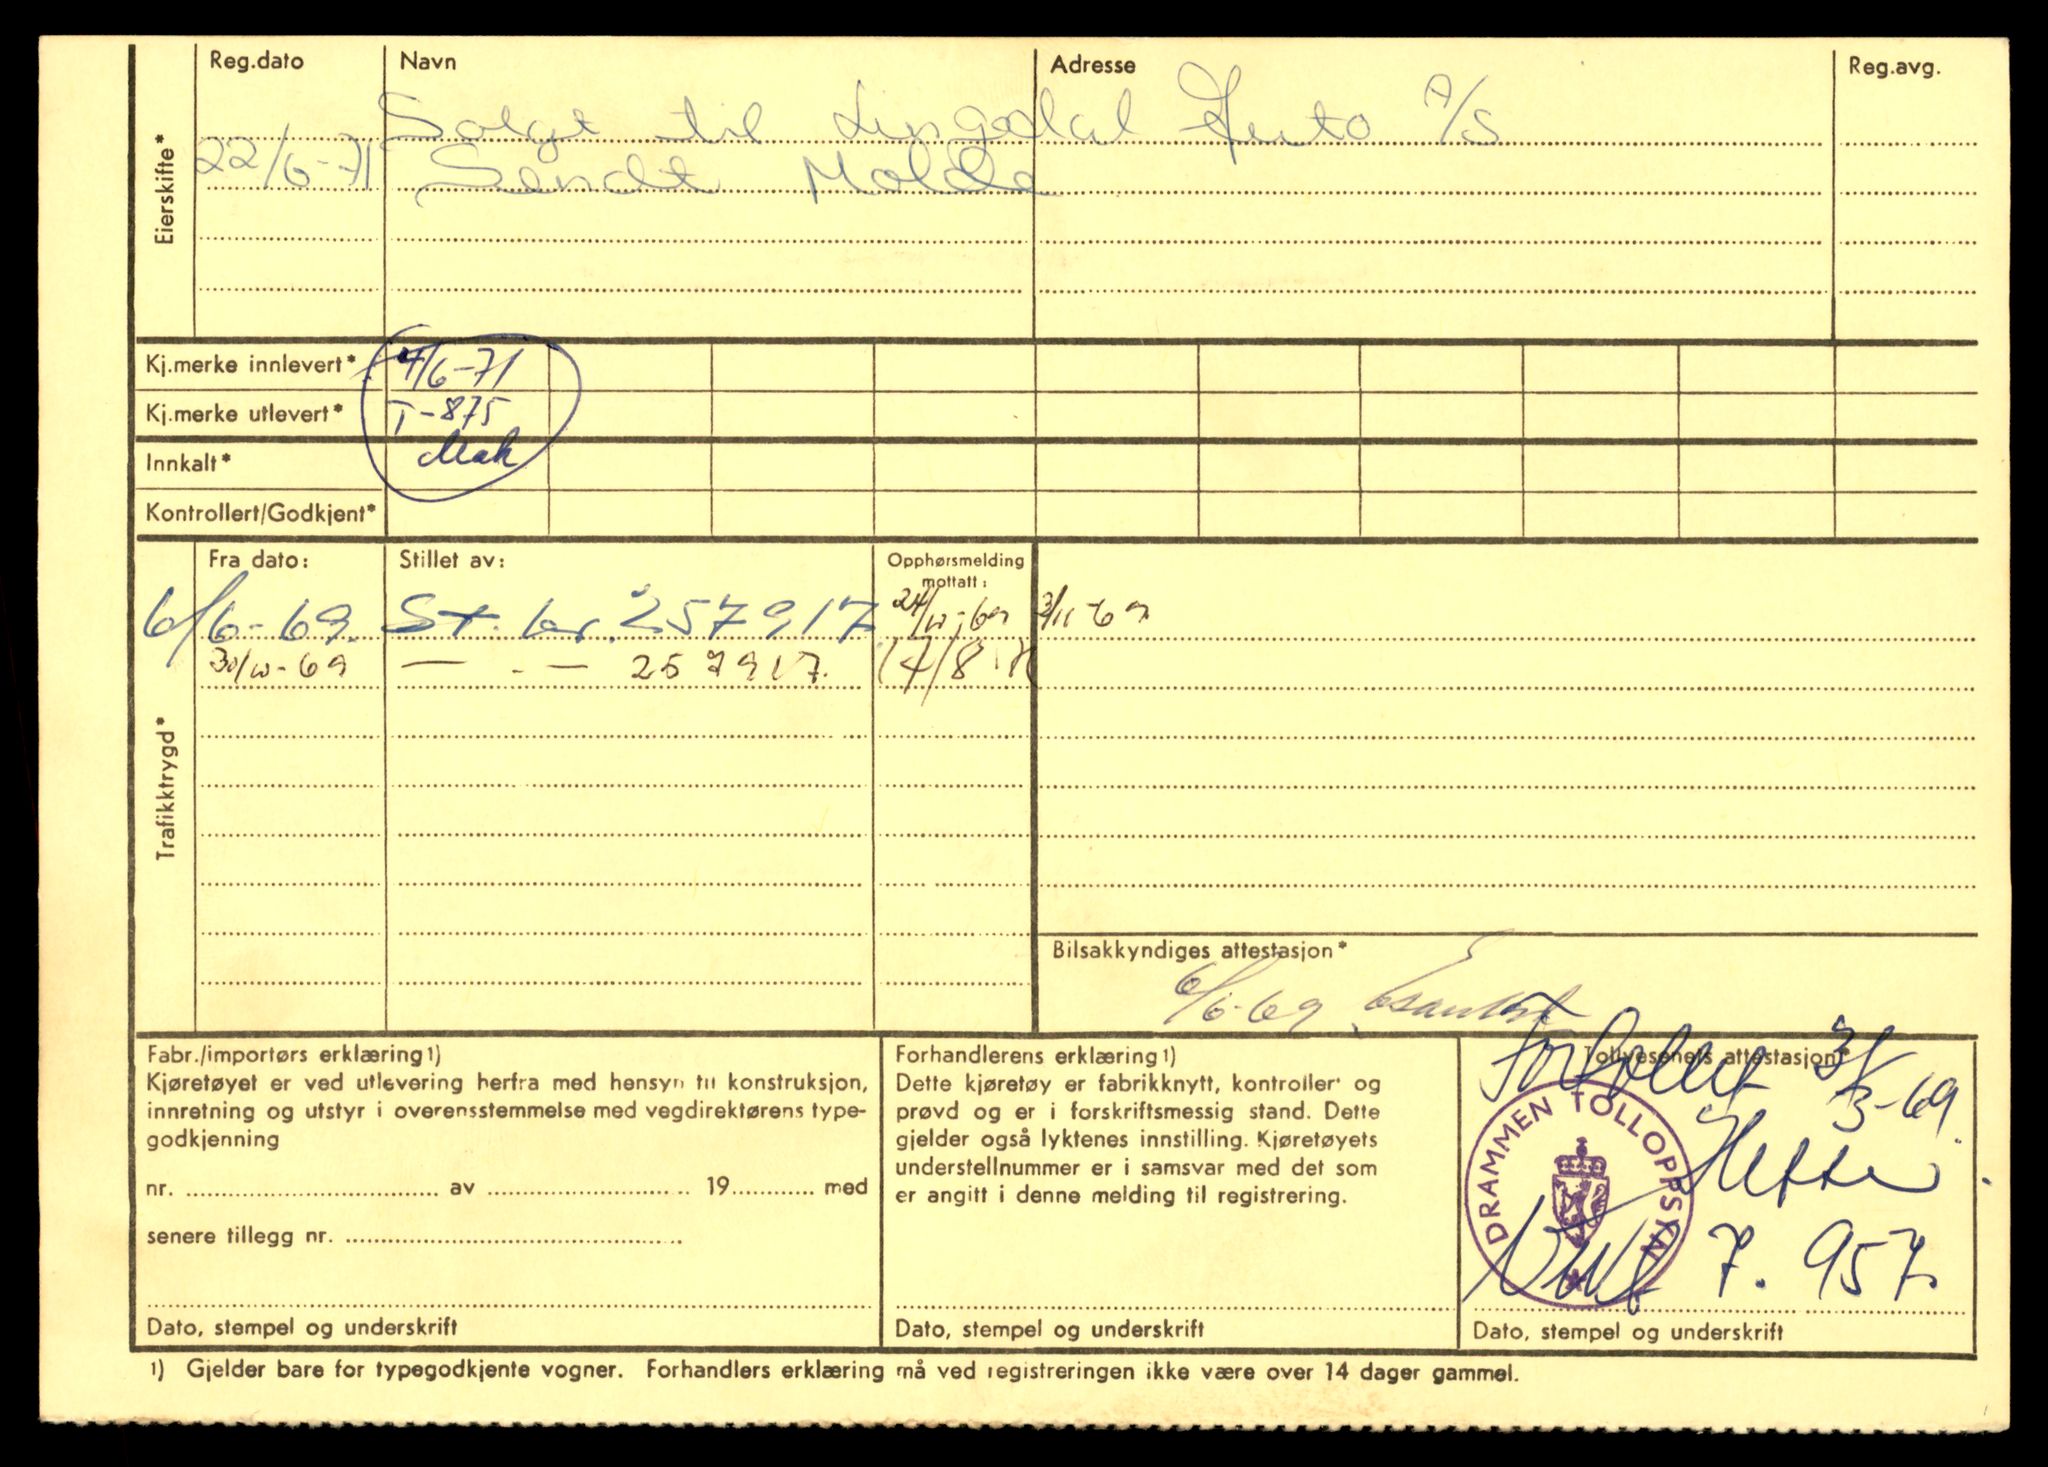 Reg.dato Navn Adresse Reg.avg.
Solgt til Lingedal Auto A/S
22/6-71 Sendt Molde
Eierskifte*
Kj.merke innlevert* 4/6-71
Kj.merke utlevert* T-875
Innkalt*
Kontrollert/Godkjent*
Fra dato: Stillet av: Opphørsmelding mottatt:
6/6-69. St. br. 257917 24/10-69 3/11-69
30/10-69 — . — 257917. 17/8
Trafikktrygd*
Bilsakkyndiges attestasjon*
6/6-69
Fabr./importørs erklæring1)
Kjøretøyet er ved utlevering herfra med hensyn til konstruksjon,
innretning og utstyr i overensstemmelse med vegdirektørens type-
godkjenning
nr. av 19 med
senere tillegg nr.
Dato, stempel og underskrift
Forhandlerens erklæring1)
Dette kjøretøy er fabrikknytt, kontrollert og
prøvd og er i forskriftsmessig stand. Dette
gjelder også lyktenes innstilling. Kjøretøyets
understellnummer er i samsvar med det som
er angitt i denne melding til registrering.
Dato, stempel og underskrift
Tollvesenets attestasjon*
Fortollet 3/3-69.
DRAMMEN TOLLOPPSYN
7.957.
Dato, stempel og underskrift
1) Gjelder bare for typegodkjente vogner. Forhandlers erklæring må ved registreringen ikke være over 14 dager gammel.